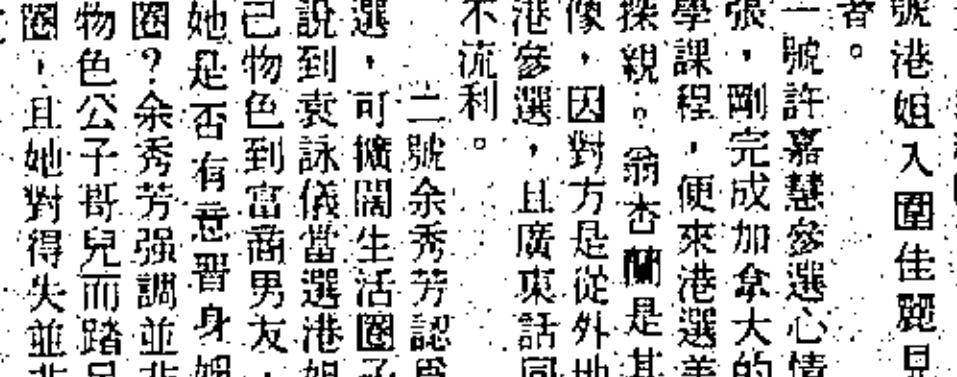 號港姐入圍佳麗見
者。
一號許嘉慧參選心情
張,剛完成加拿大的
學課程,便來港選美
探親。翁杏蘭是其
像,因對方是從外地
港參選,且廣東話同
不流利。
二號余秀芳認爲
選,可擴闊生活圈子
說到袁詠儀當選港姐
己物色到富商男友,
她是否有意習身姐
圈?余秀芳强調並非
物色公子哥兒而踏足
圈,且她對得失並非